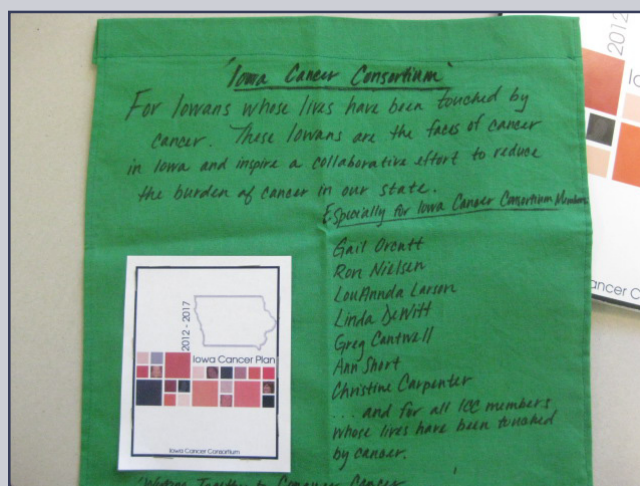 'Iowa Cancer Consortium'
For Iowans whose lives have been touched by
cancer. These Iowans are the faces of cancer
in Iowa and inspire a collaborative effort to reduce
the burden of cancer in our state.
Especially for Iowa Cancer Consortium Members
Gail Orcutt
Ron Nielsen
LouAnnda Larson
Linda DeWitt
Greg Cantwell
Ann Short
Christine Carpenter
... and for all ICC members
whose lives have been touched
by cancer.
2012 - 2017
Iowa Cancer Plan
Iowa Cancer Consortium
'Working Together to Conquer Cancer'
2012